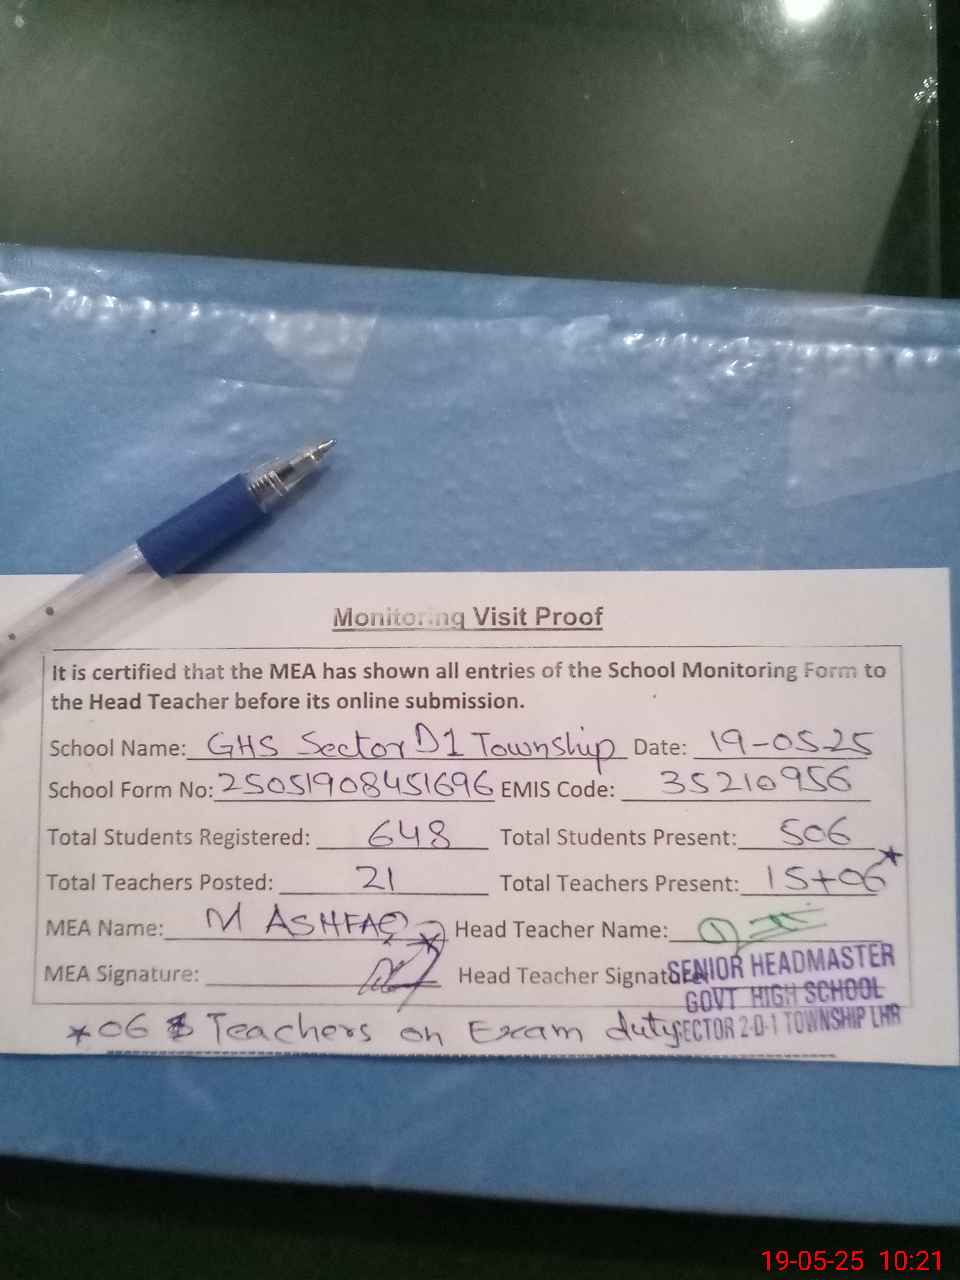 Monitoring Visit Proof
It is certified that the MEA has shown all entries of the School Monitoring Form to
the Head Teacher before its online submission.
School Name: GHS Sector D1 Township Date: 19-05-25
School Form No: 25051908451696 EMIS Code: 35210956
Total Students Registered: 648 Total Students Present: 506
Total Teachers Posted: 21 Total Teachers Present: 15+06*
MEA Name: M ASHFAQ Head Teacher Name:
MEA Signature: Head Teacher Signat
SENIOR HEADMASTER
GOVT HIGH SCHOOL
SECTOR 2-D-1 TOWNSHIP LHR
*06 Teachers on Exam duty
19-05-25 10:21